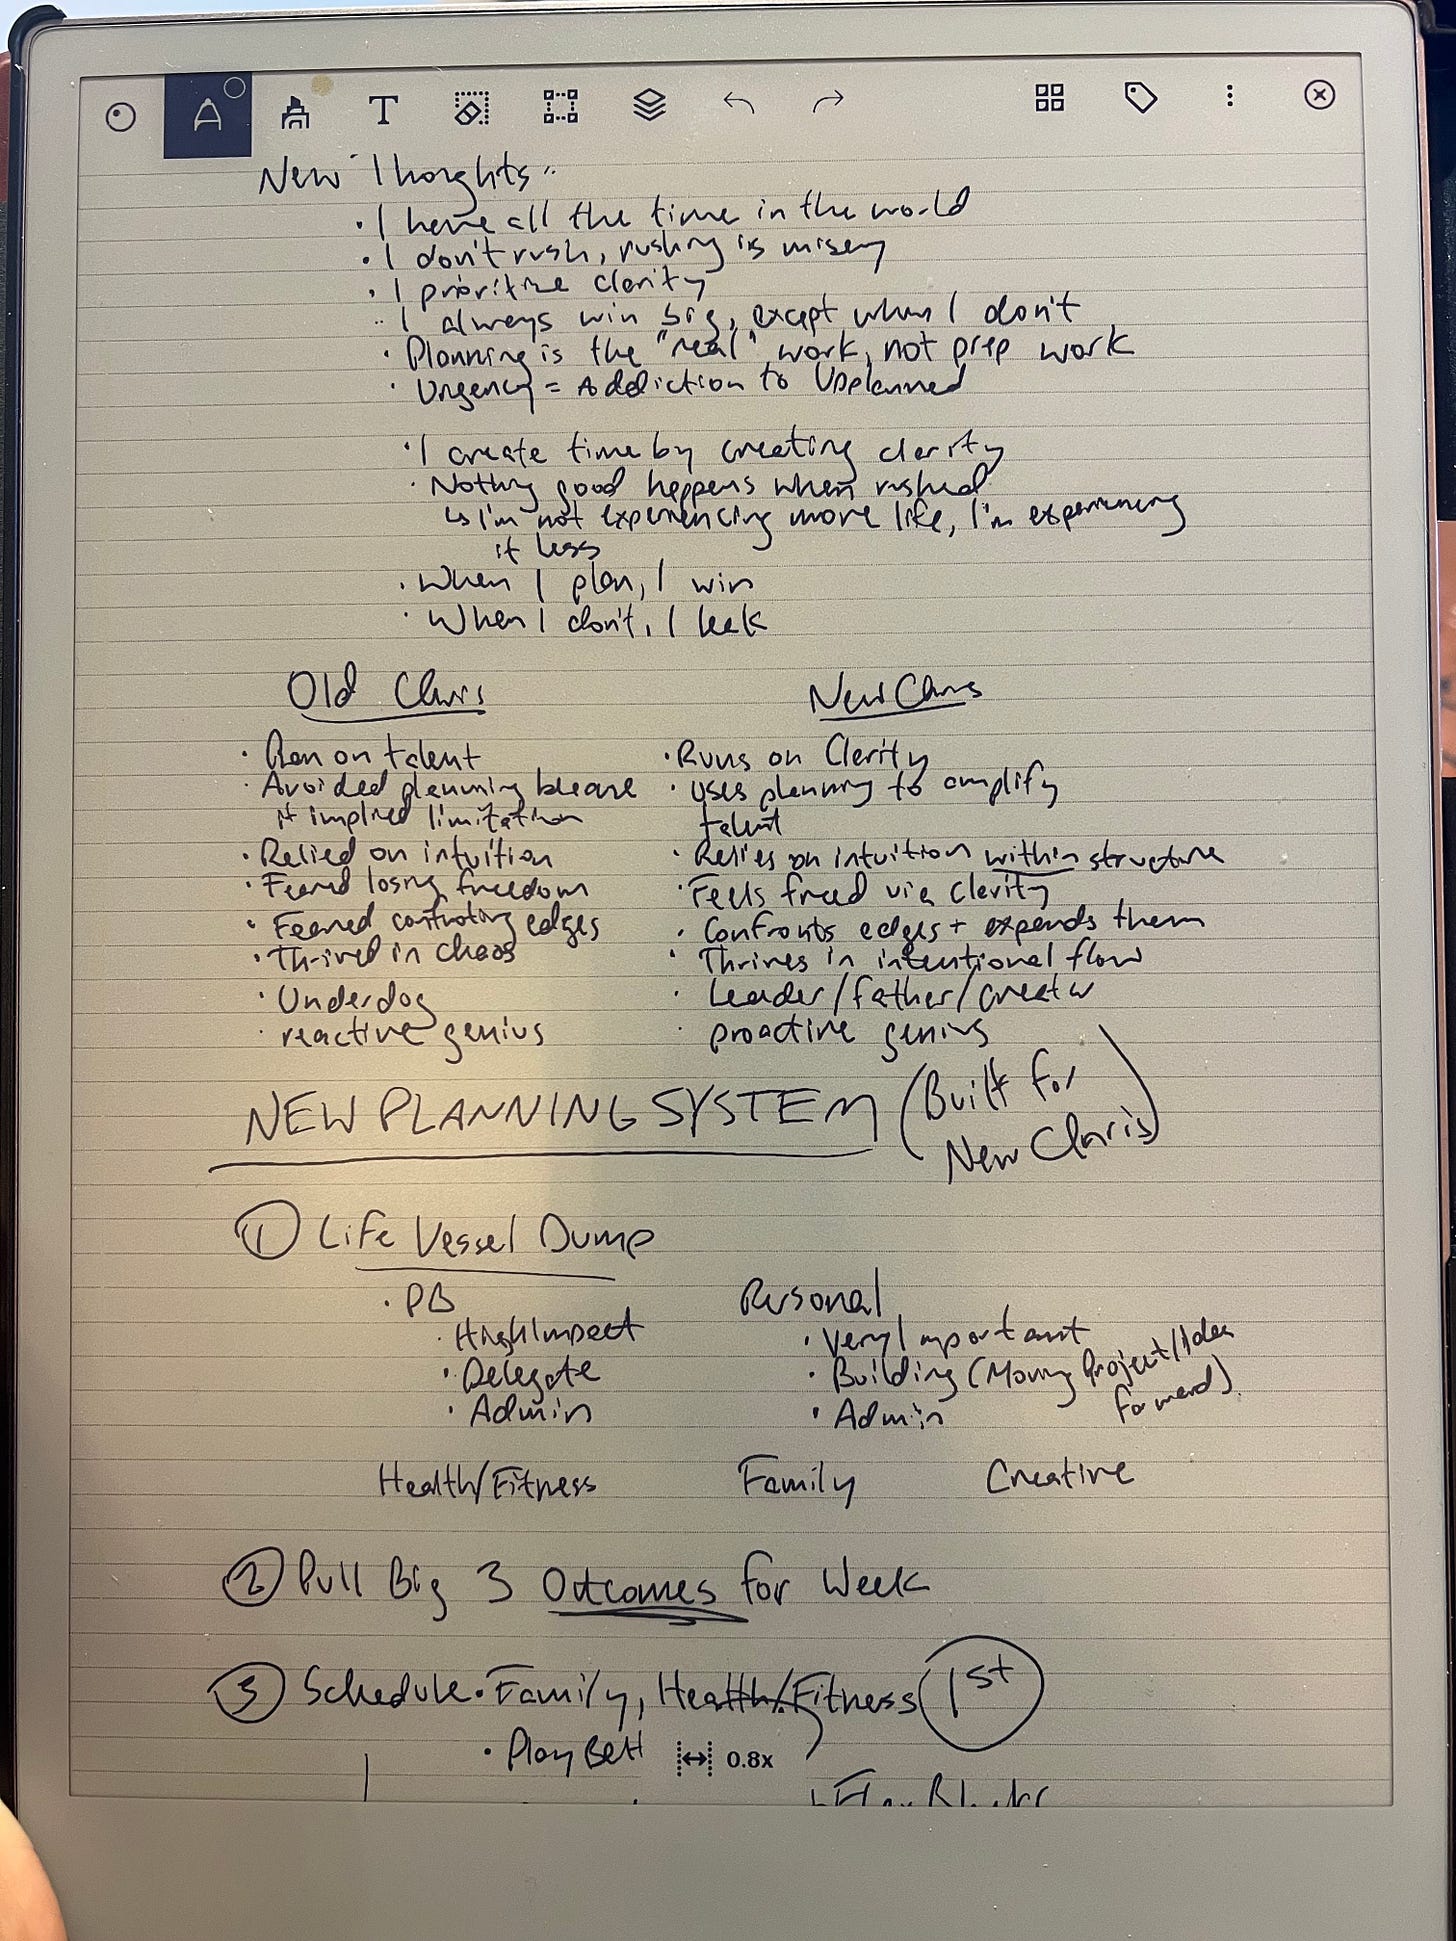 T
New Thoughts..
• I have all the time in the world
• I don't rush, rushing is misery
• I prioritize clarity
• I always win big, except when I don't
• Planning is the "real" work, not prep work
• Urgency = Addiction to Unplanned
• I create time by creating clarity
• Nothing good happens when rushed
↳ I'm not experiencing more life, I'm experiencing
it less
• When I plan, I win
• When I don't, I leak
Old Claris
• Ran on talent
• Avoided planning because
it implied limitation
• Relied on intuition
• Feared losing freedom
• Feared confronting edges
• Thrived in chaos
• Underdog
• reactive genius
New Claris
• Runs on Clarity
• uses planning to amplify
talent
• Relies on intuition within structure
• Feels freed via clarity
• Confronts edges + expands them
• Thrives in intentional flow
• Leader/father/creator
• proactive genius
NEW PLANNING SYSTEM (Built for
New Claris)
① Life Vessel Dump
• PB
• High Impact
• Delegate
• Admin
Personal
• Very Important
• Building (Moving Project/Idea
forward)
• Admin
Health/Fitness Family Creative
② Pull Big 3 Outcomes for Week
③ Schedule • Family, Health/Fitness 1st
• Play
0.8x
Flex Blocks